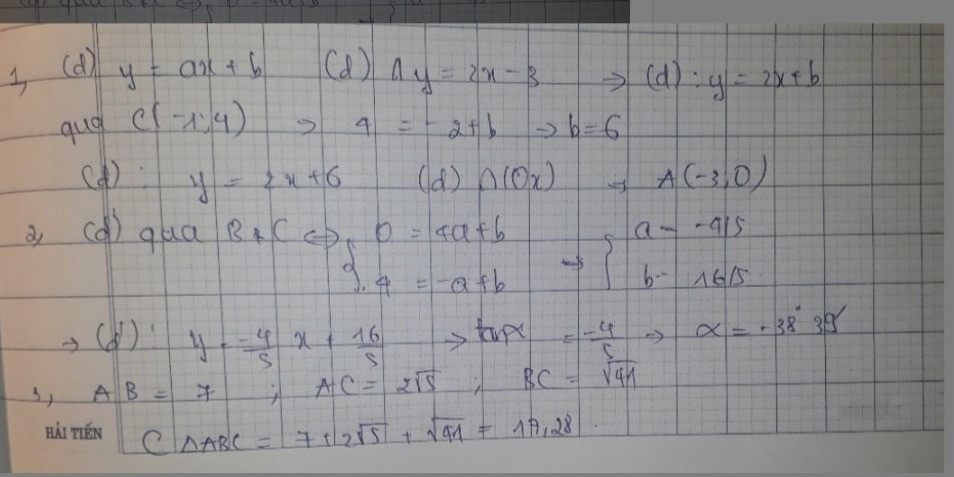 1, (d) y = ax + b (d) ∩ y = 2x - 3 → (d) : y = 2x + b
qua C(-1; 4) → 4 = -2 + b → b = 6
(d) : y = 2x + 6 (d) ∩ (Ox) → A(-3, 0)
2, (d') qua B & C <=> { 0 = 4a + b → { a = -4/5
4 = -a + b b = 16/5
→ (d') : y = -4/5 x + 16/5 → tan α = -4/5 → α = -38° 39'
3, AB = 7 ; AC = 2√5 ; BC = √41
HẢI TIẾN C ΔABC = 7 + 2√5 + √41 = 17,28.